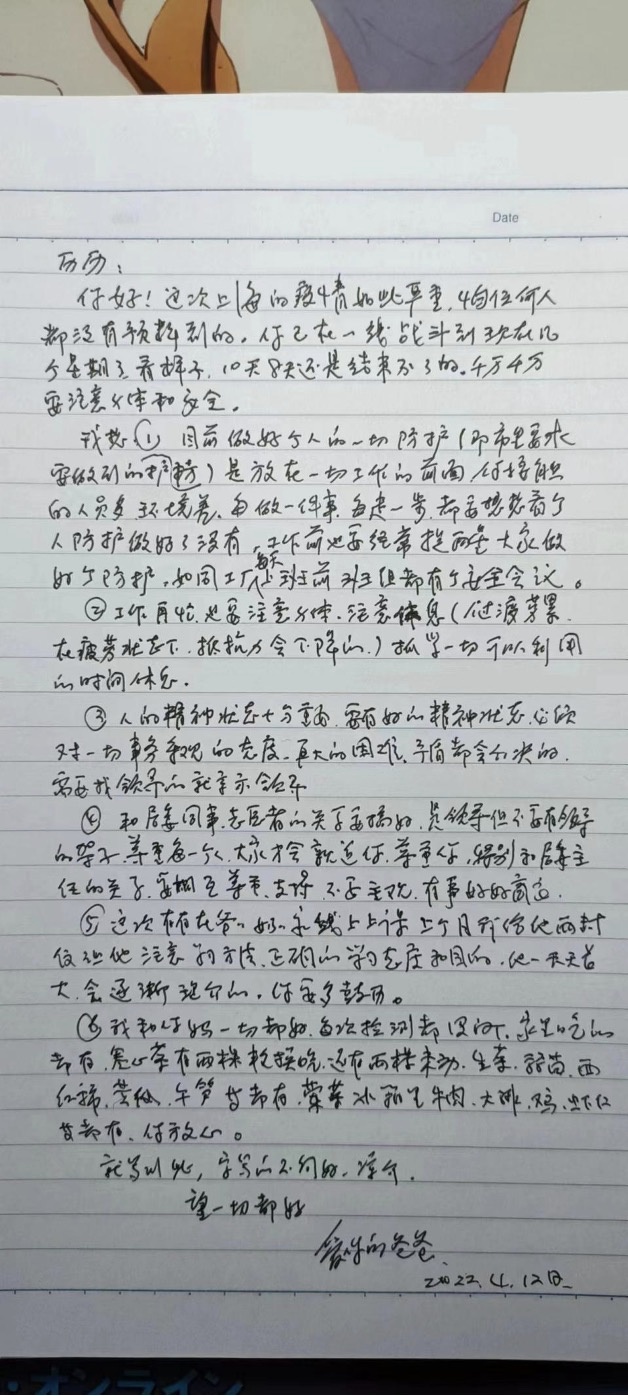 Date
历历：
你好！这次上海的疫情如此严重，令任何人
都没有预料到的。你已在一线战斗到现在几
个星期了看样子，10天8天还是结束不了的。千万千万
要注意身体和安全。
我想① 目前做好个人的一切防护（即市里要求
要做到的护防）是放在一切工作的前面，你接触
的人员多，环境差，每做一件事，每走一步，都要想想看个
人防护做好了没有，工作前也要经常提醒大家做
好个防护，如同工厂每天上班前班组都有个安全会议。
②工作再忙，也要注意身体，注意休息（过渡劳累
在疲劳状态下，抵抗力会下降的。）抓紧一切可以利用
的时间休息。
③ 人的精神状态十分重要，要有好的精神状态，必须
对一切事务乐观的态度，再大的困难，矛盾都会解决的，
需要找领导的就请示领导
④ 和居委同事，志愿者的关系要搞好，是领导但不要有领导
的架子，尊重每一个人，大家才会亲近你，尊重你，特别和居委主
任的关系，要相互尊重，支持，不要主观，有事好好商量。
⑤ 这次在爷奶家线上上课，上个月我给他两封
信让他注意学习方法，正确的学习态度和目的，他一天天长
大，会逐渐理解的，你要多鼓励。
⑥ 我和你妈一切都好，每次检测都没问，家里吃的
都有，卷心菜有两棵轮换吃，还有两棵，生菜，西
红柿，笋皆都有，荤菜冰箱里牛肉，大排，鸡，虾仁
皆都有，你放心。
就写到此，字写的不何好，谅解，
望一切都好
爱你的爸爸
2022.4.12日
オンライン